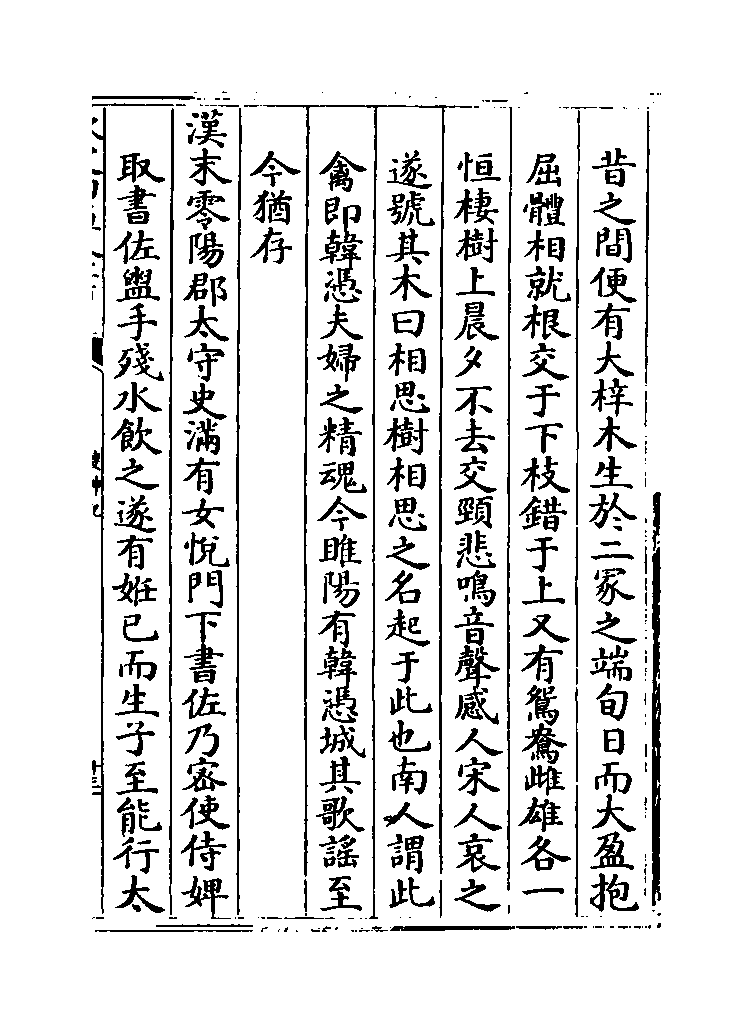 昔之間便有大梓木生於二冢之端旬日而大盈抱
屈體相就根交于下枝錯于上又有鴛鴦雌雄各一
恒棲樹上晨夕不去交頸悲鳴音聲感人宋人哀之
遂號其木曰相思樹相思之名起于此也南人謂此
禽即韓憑夫婦之精魂今睢陽有韓憑城其歌謠至
今猶存
漢末零陽郡太守史滿有女悅門下書佐乃宻使侍婢
取書佐盥手殘水飲之遂有姙已而生子至能行太